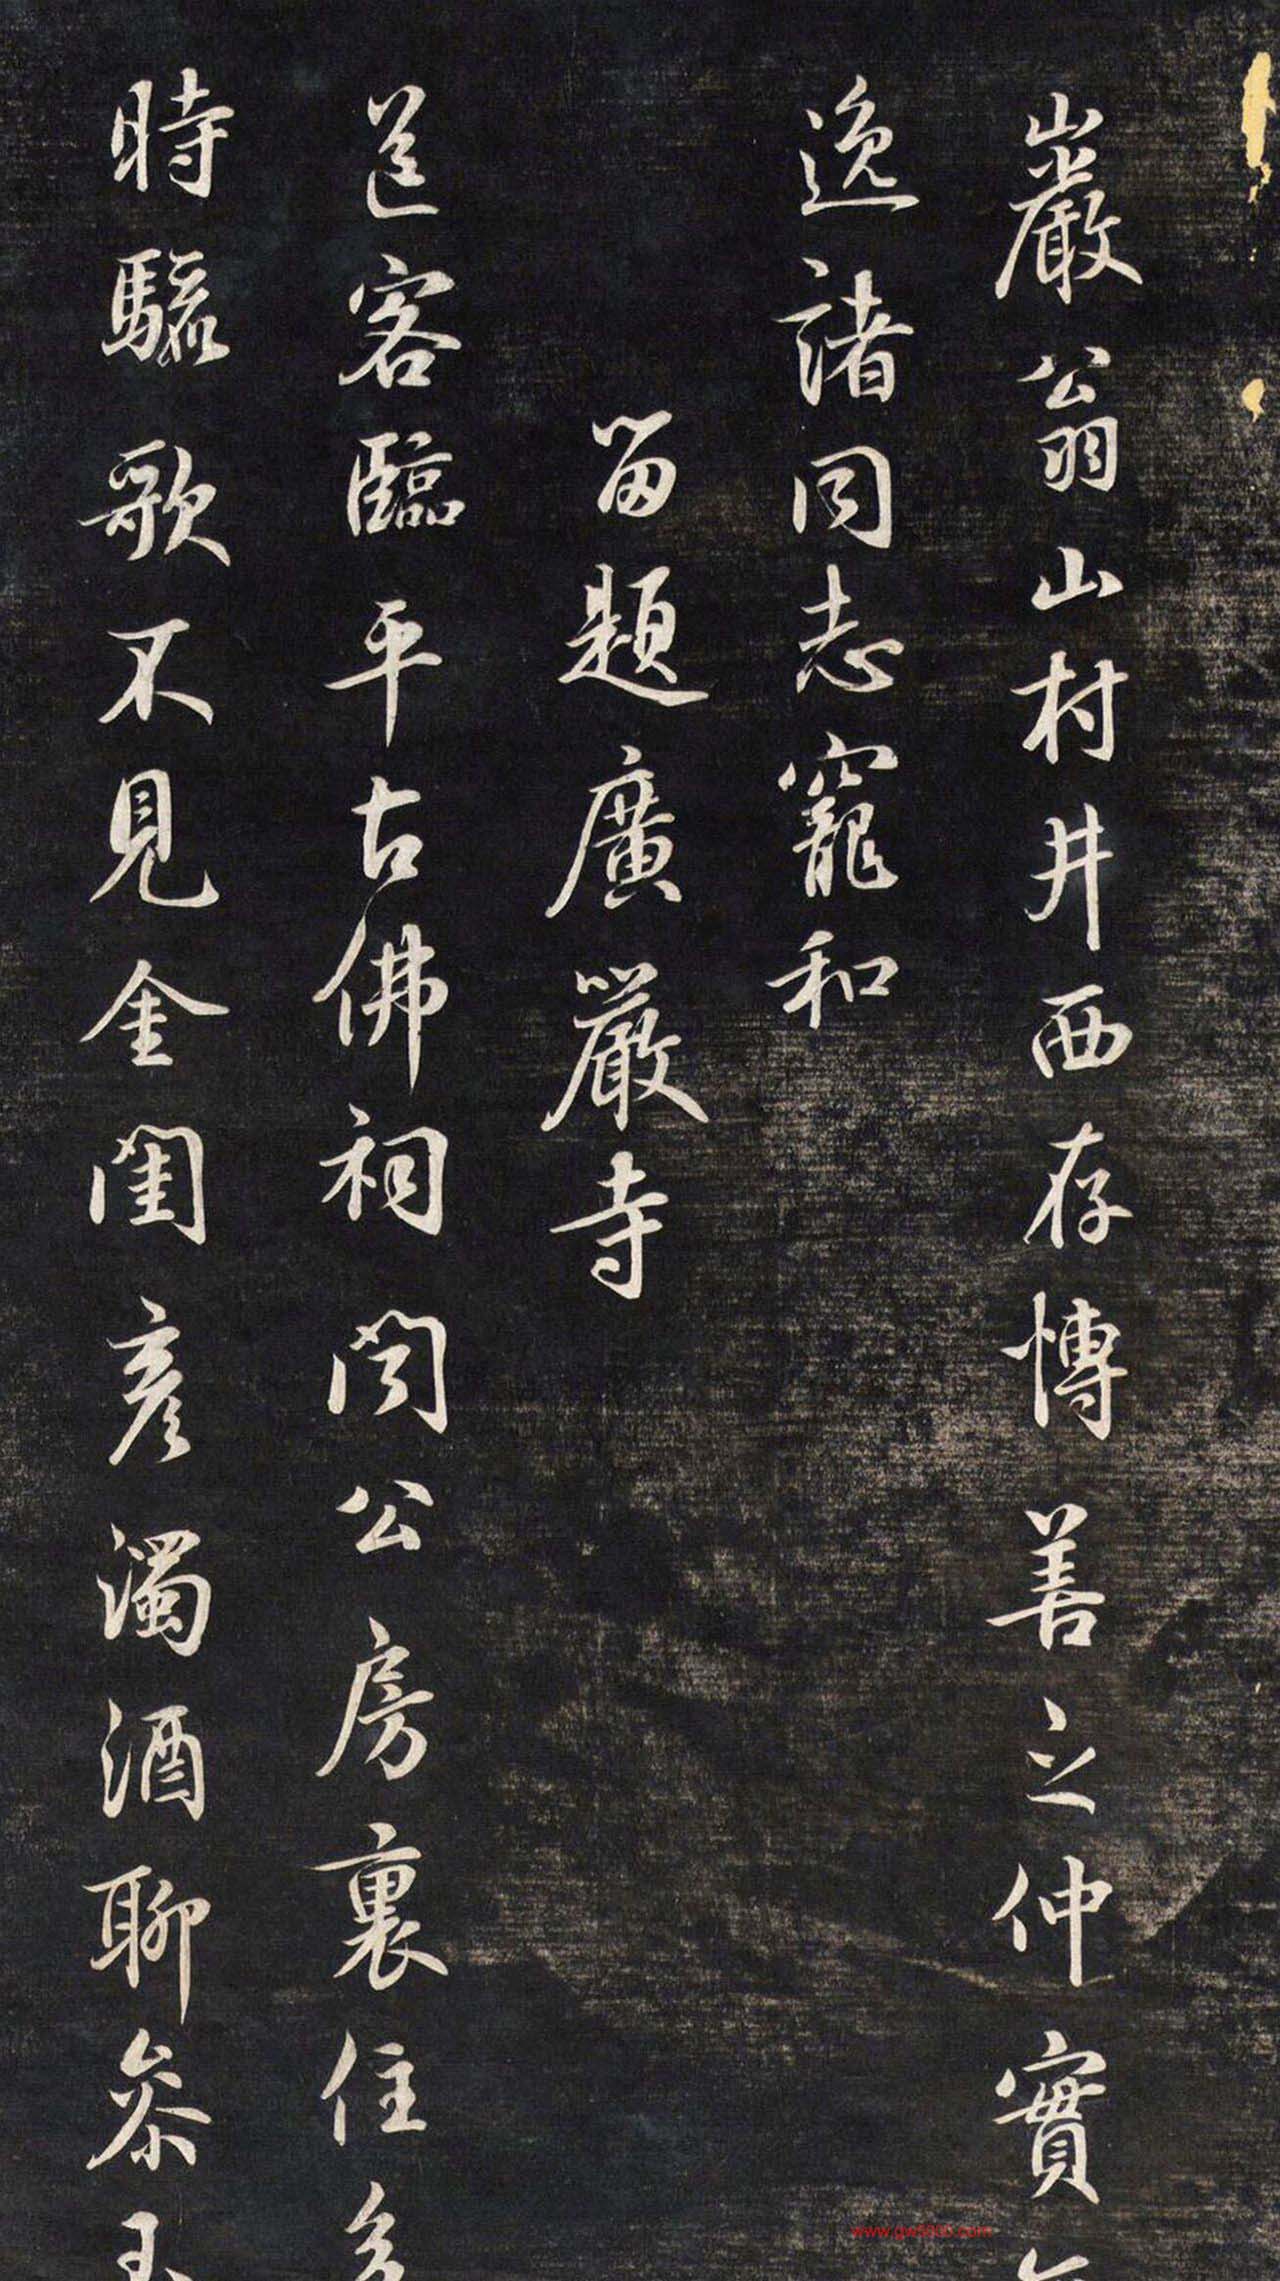 巖翁山村井西存博善之仲實
逸諸同志寵和
留題廣嚴寺
送客臨平古佛祠闵公房裏住多
時驪歌不見金閨彦濁酒聊參玉
www.gw5000.com